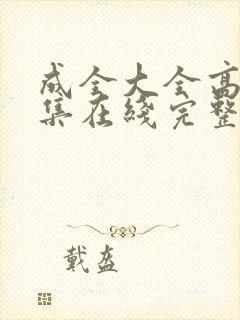 成全大全高
集在线完整
戴盔